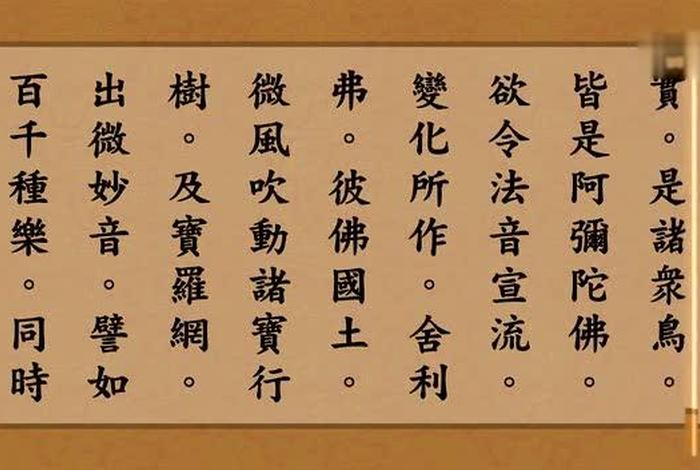 。是諸衆鳥。
皆是阿彌陀佛。
欲令法音宣流。
變化所作。舍利
弗。彼佛國土。
微風吹動諸寶行
樹。及寶羅網。
出微妙音。譬如
百千種樂。同時